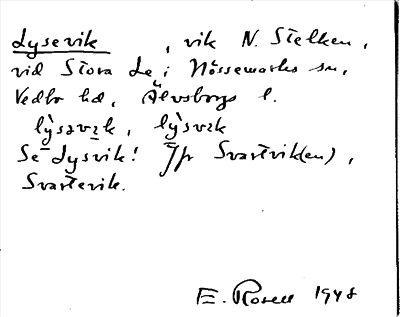 Lysevik , vik N. Stelken,
vid Stora Le; Nössemarks sn,
Vedbo hd, Älvsborgs l.
lỳsəvɪk, lỳsvɪk
Se Lysvik! Jfr Svartvik(en),
Svartevik.
E. Rosell 1948